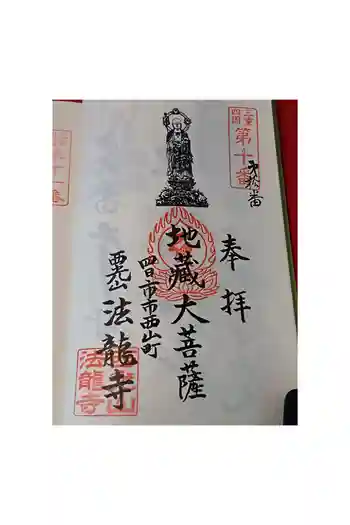 三重
四国
第十番
奉拝
地蔵大菩薩
四日市市西山町
法龍寺
法龍寺